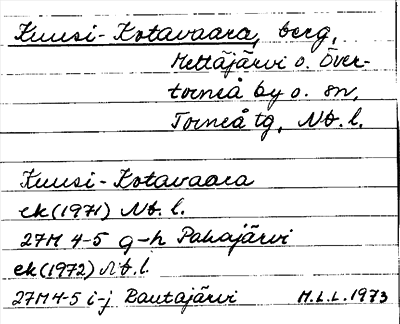 Kuusi-Kotavaara, berg,
Mettäjärvi o. Över-
torneå by o. sn,
Torneå tg, Nb. l.
Kuusi-Kotavaara
ek(1971) Nb. l.
27M 4-5 g-h Pahajärvi
ek(1972) Nb. l.
27M 4-5 i-j Rautajärvi M.L.L. 1973